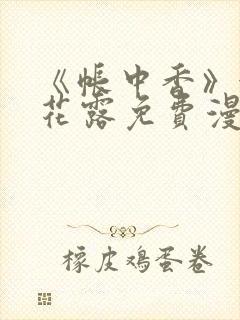 《帐中香》
花露免费漫
橡皮鸡蛋卷